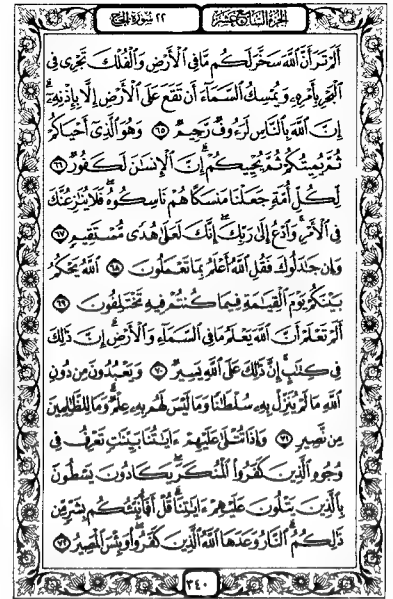 الجزء السابع عشر
٢٢ سورة الحج
أَلَمْ تَرَ أَنَّ ٱللَّهَ سَخَّرَ لَكُم مَّا فِى ٱلْأَرْضِ وَٱلْفُلْكَ تَجْرِى فِى
ٱلْبَحْرِ بِأَمْرِهِۦ وَيُمْسِكُ ٱلسَّمَآءَ أَن تَقَعَ عَلَى ٱلْأَرْضِ إِلَّا بِإِذْنِهِۦٓ ۗ
إِنَّ ٱللَّهَ بِٱلنَّاسِ لَرَءُوفٌ رَّحِيمٌ ٦٥ وَهُوَ ٱلَّذِىٓ أَحْيَاكُمْ
ثُمَّ يُمِيتُكُمْ ثُمَّ يُحْيِيكُمْ ۗ إِنَّ ٱلْإِنسَٰنَ لَكَفُورٌ ٦٦
لِّكُلِّ أُمَّةٍ جَعَلْنَا مَنسَكًا هُمْ نَاسِكُوهُ ۖ فَلَا يُنَٰزِعُنَّكَ
فِى ٱلْأَمْرِ ۚ وَٱدْعُ إِلَىٰ رَبِّكَ ۖ إِنَّكَ لَعَلَىٰ هُدًى مُّسْتَقِيمٍ ٦٧
وَإِن جَٰدَلُوكَ فَقُلِ ٱللَّهُ أَعْلَمُ بِمَا تَعْمَلُونَ ٦٨ ٱللَّهُ يَحْكُمُ
بَيْنَكُمْ يَوْمَ ٱلْقِيَٰمَةِ فِيمَا كُنتُمْ فِيهِ تَخْتَلِفُونَ ٦٩
أَلَمْ تَعْلَمْ أَنَّ ٱللَّهَ يَعْلَمُ مَا فِى ٱلسَّمَآءِ وَٱلْأَرْضِ ۗ إِنَّ ذَٰلِكَ
فِى كِتَٰبٍ ۚ إِنَّ ذَٰلِكَ عَلَى ٱللَّهِ يَسِيرٌ ٧٠ وَيَعْبُدُونَ مِن دُونِ
ٱللَّهِ مَا لَمْ يُنَزِّلْ بِهِۦ سُلْطَٰنًا وَمَا لَيْسَ لَهُم بِهِۦ عِلْمٌ ۗ وَمَا لِلظَّٰلِمِينَ
مِن نَّصِيرٍ ٧١ وَإِذَا تُتْلَىٰ عَلَيْهِمْ ءَايَٰتُنَا بَيِّنَٰتٍ تَعْرِفُ فِى
وُجُوهِ ٱلَّذِينَ كَفَرُوا۟ ٱلْمُنكَرَ ۖ يَكَادُونَ يَسْطُونَ
بِٱلَّذِينَ يَتْلُونَ عَلَيْهِمْ ءَايَٰتِنَا ۗ قُلْ أَفَأُنَبِّئُكُم بِشَرٍّ مِّن
ذَٰلِكُمُ ۗ ٱلنَّارُ وَعَدَهَا ٱللَّهُ ٱلَّذِينَ كَفَرُوا۟ ۖ وَبِئْسَ ٱلْمَصِيرُ ٧٢
٣٤٠